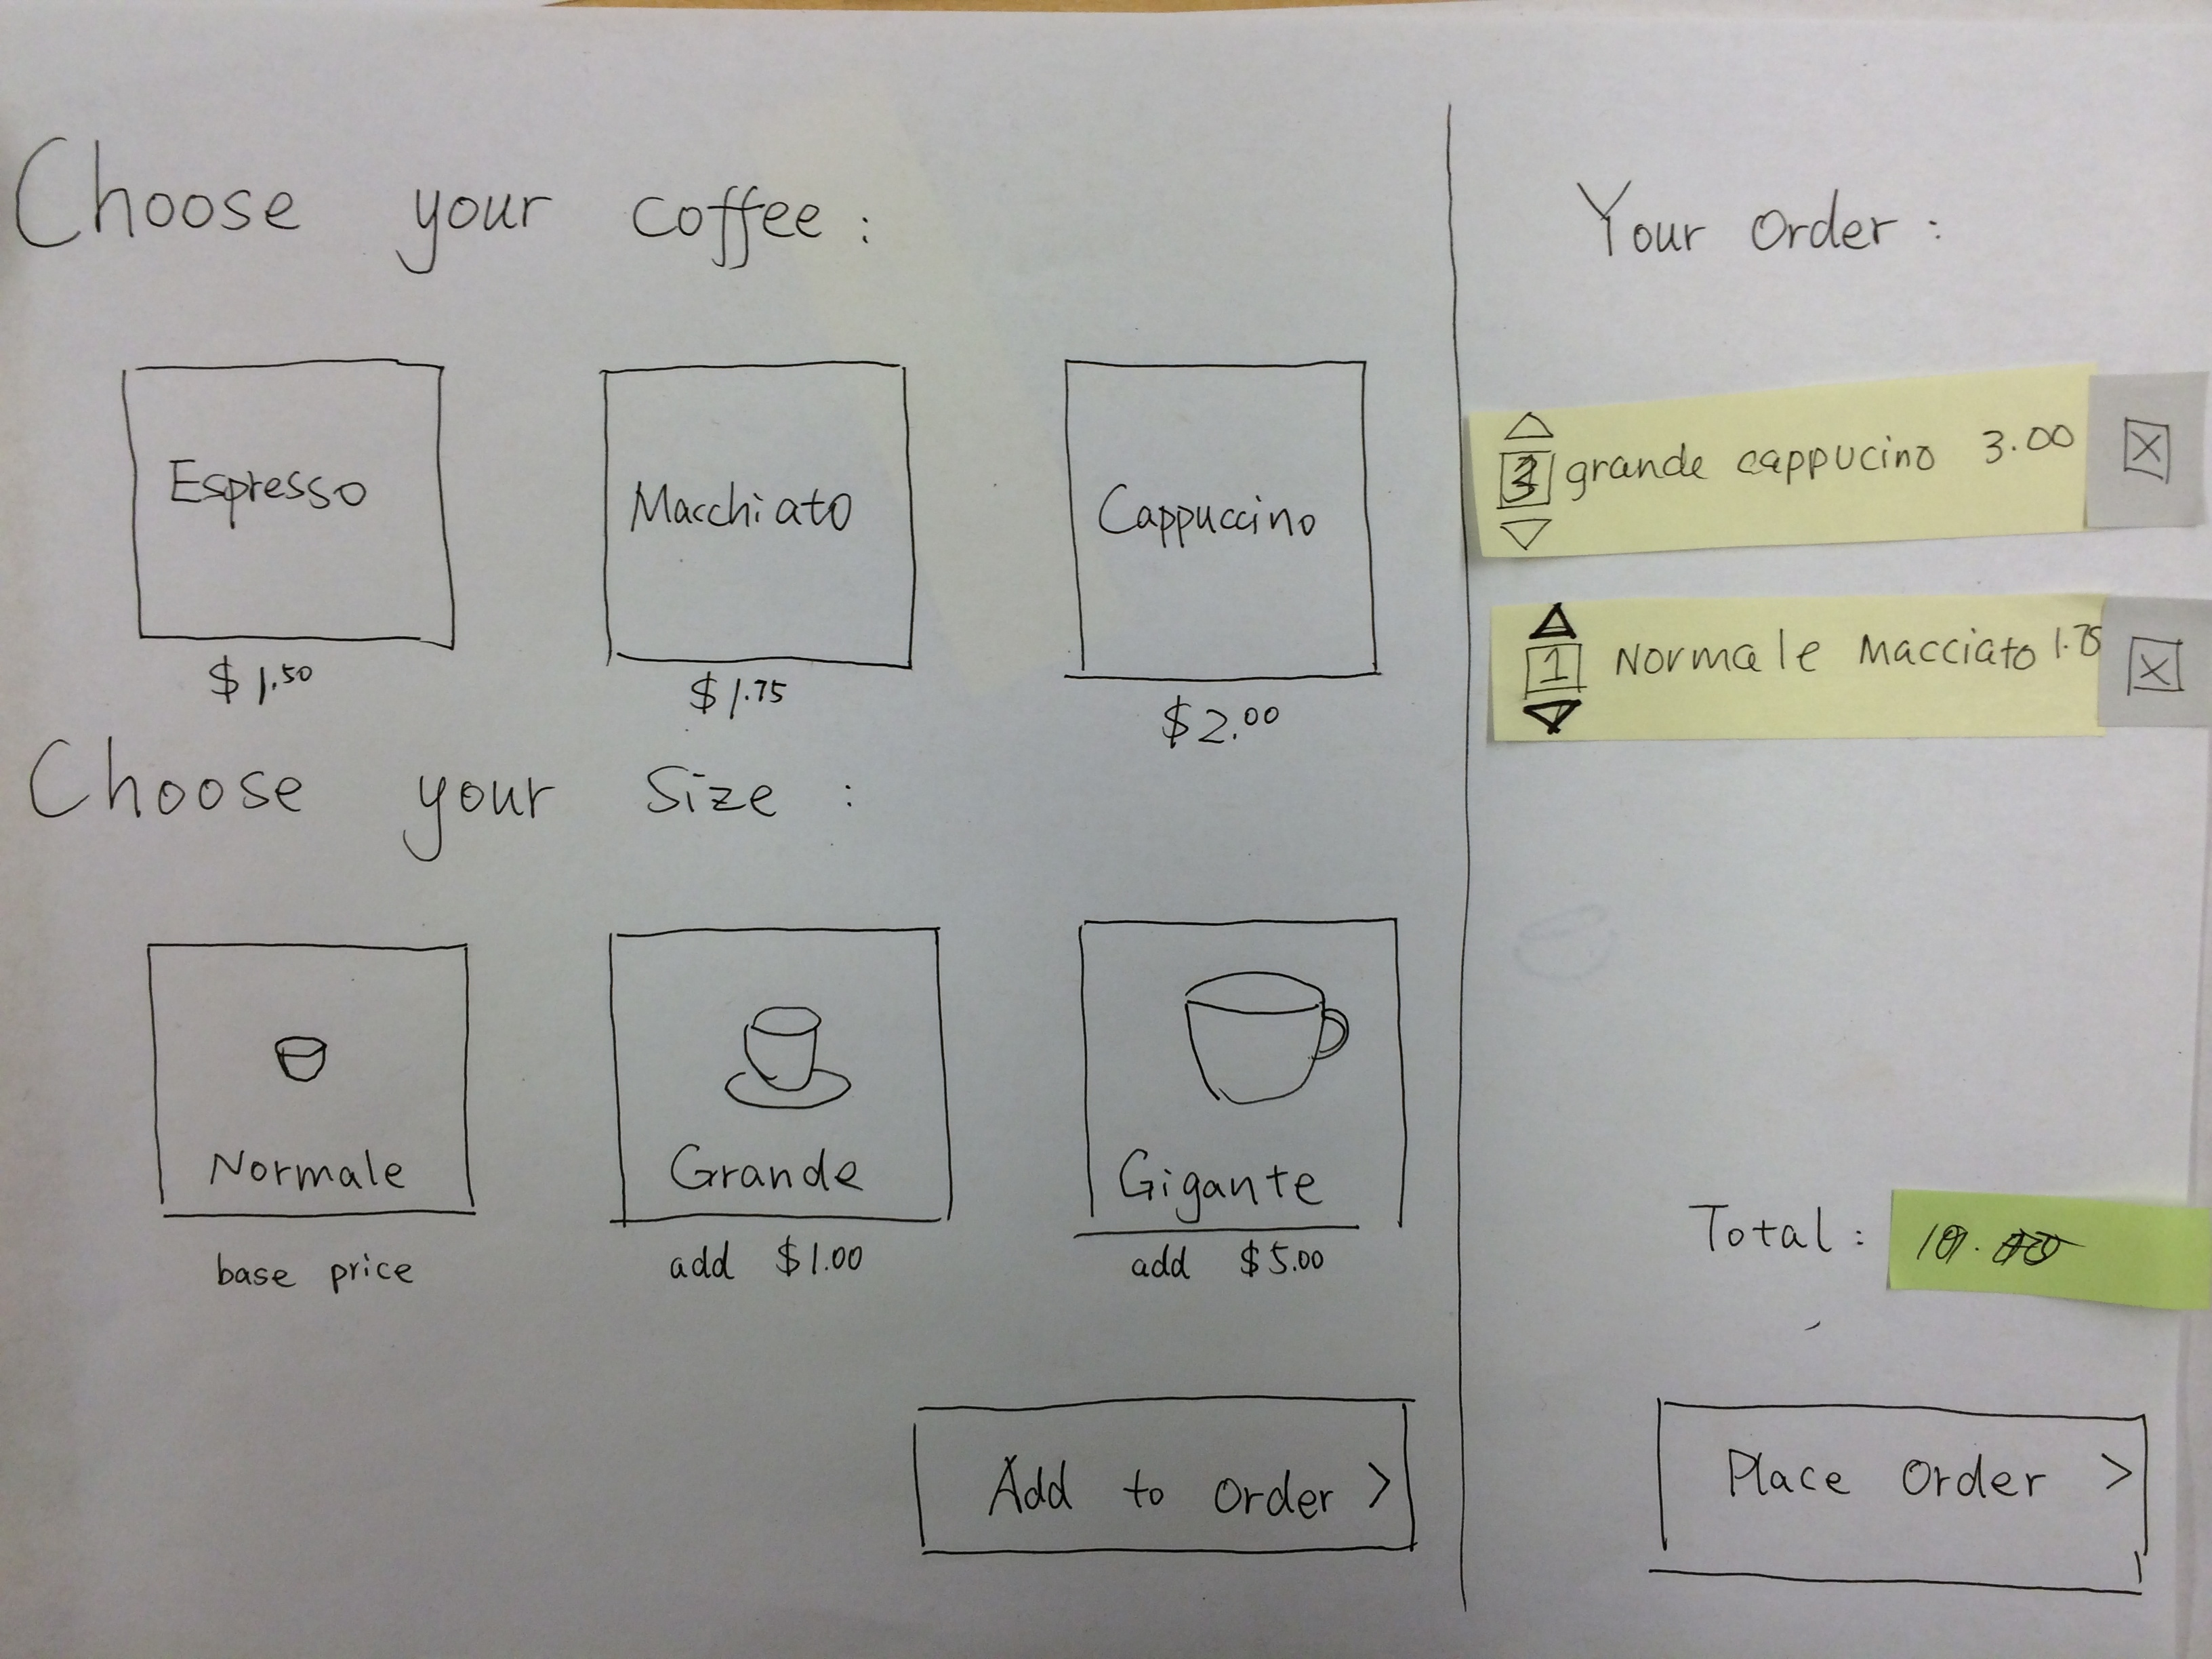 Choose your coffee :
Espresso
$1.50
Macchiato
$1.75
Cappuccino
$2.00
Choose your Size :
Normale
base price
Grande
add $1.00
Gigante
add $5.00
Add to order >
Your Order :
3 grande cappucino 3.00 X
1 Normale Macciato 1.75 X
Total :
Place Order >